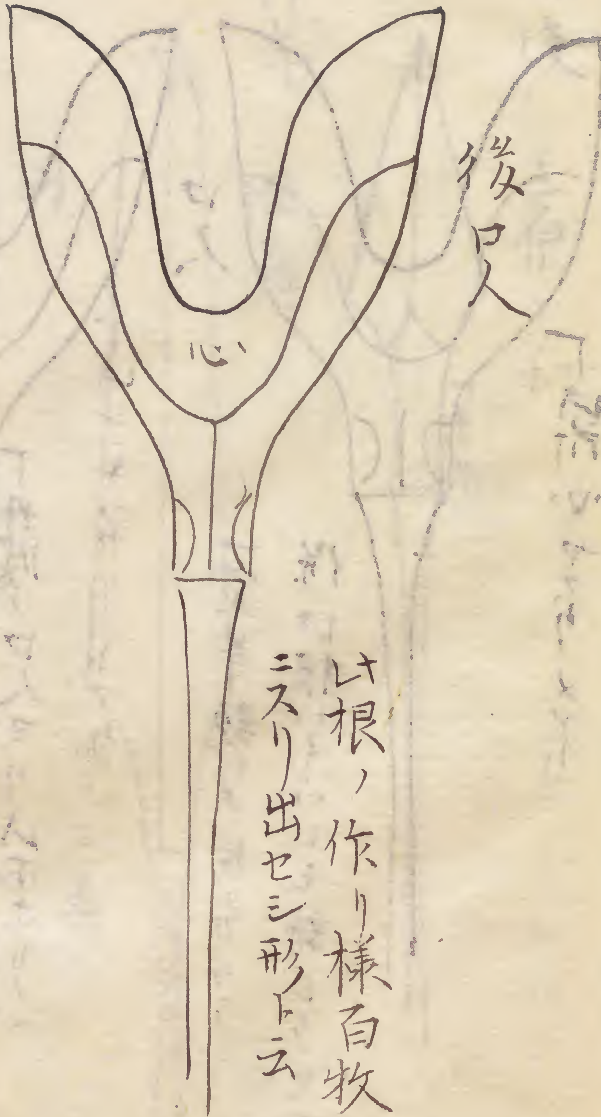 後口人
心
此根ノ作リ様百枚
ニスリ出セシ形ト云